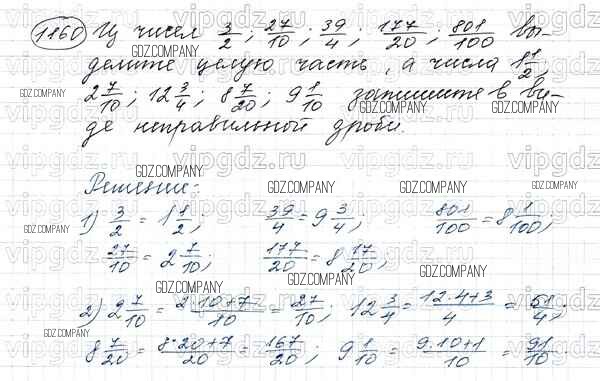 1160 Из чисел 3/2; 27/10; 39/4; 177/20; 801/100 вы-
делите целую часть, а числа 1 1/2;
2 7/10; 12 3/4; 8 7/20; 9 1/10 запишите в ви-
де неправильной дроби.
Решение:
1) 3/2 = 1 1/2; 39/4 = 9 3/4; 801/100 = 8 1/100;
27/10 = 2 7/10; 177/20 = 8 17/20;
2) 2 7/10 = 2·10+7/10 = 27/10; 12 3/4 = 12·4+3/4 = 51/4;
8 7/20 = 8·20+7/20 = 167/20; 9 1/10 = 9·10+1/10 = 91/10